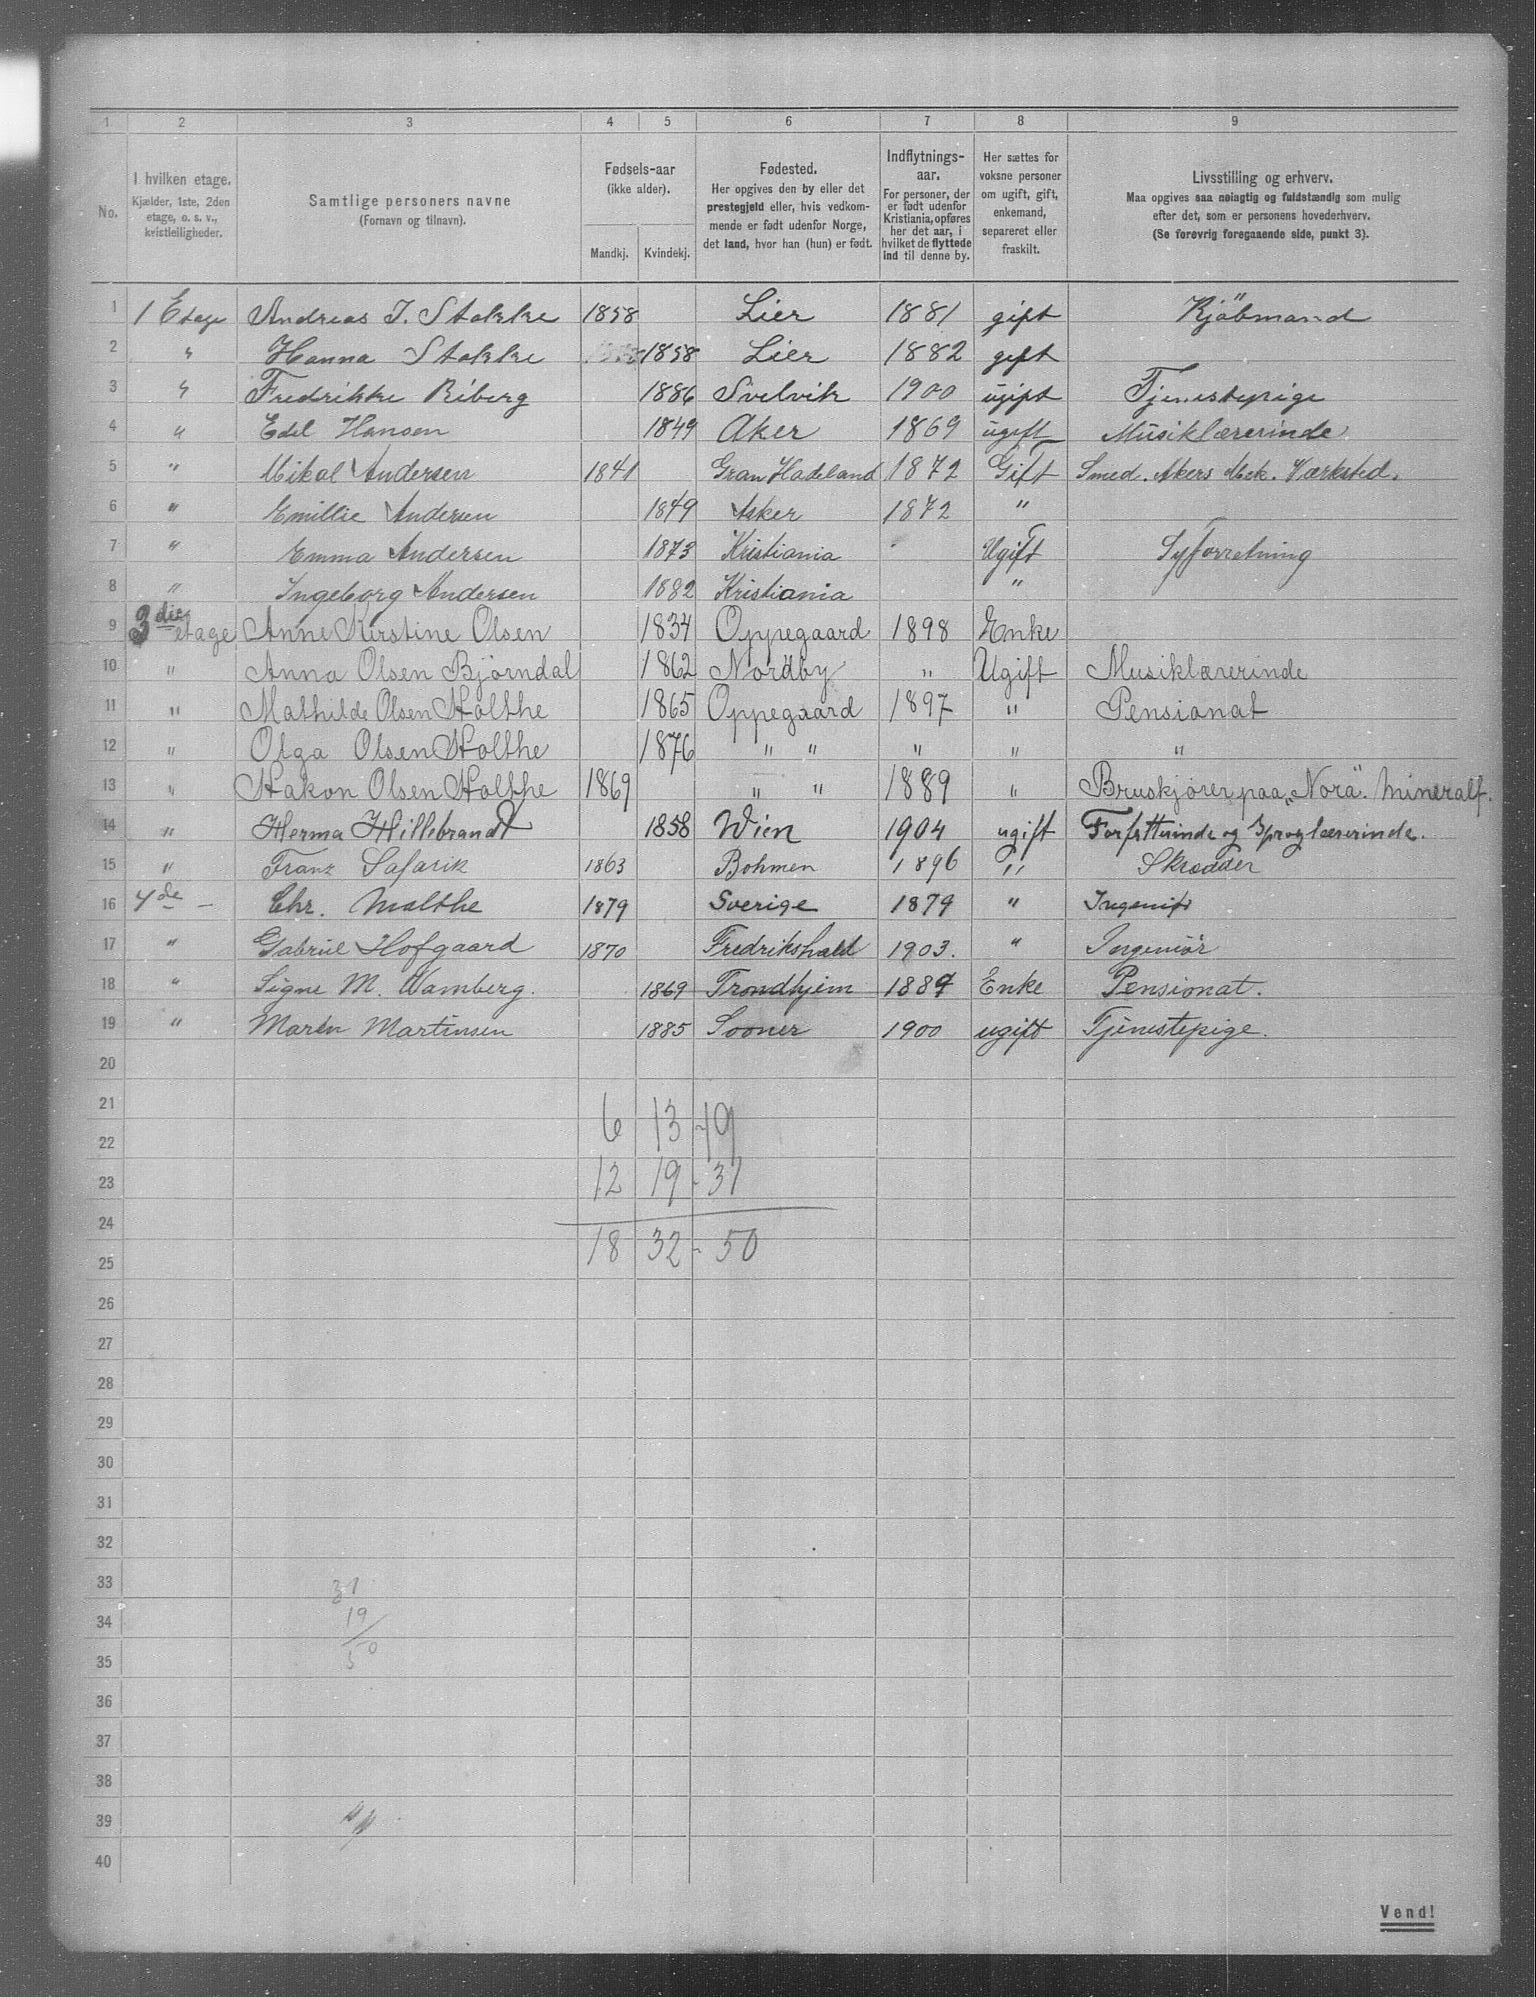 1 2 3 4 5 6 7 8 9
No.
I hvilken etage.
Kjælder, 1ste, 2den
etage, o. s. v.,
kvistleiligheder.
Samtlige personers navne
(Fornavn og tilnavn).
Fødsels-aar
(ikke alder).
Mandkj. Kvindekj.
Fødested.
Her opgives den by eller det
prestegjeld eller, hvis vedkom-
mende er født udenfor Norge,
det land, hvor han (hun) er født.
Indflytnings-
aar.
For personer, der
er født udenfor
Kristiania, opføres
her det aar, i
hvilket de flyttede
ind til denne by.
Her sættes for
voksne personer
om ugift, gift,
enkemand,
separeret eller
fraskilt.
Livsstilling og erhverv.
Maa opgives saa nøiagtig og fuldstændig som mulig
efter det, som er personens hovederhverv.
(Se forøvrig foregaaende side, punkt 3).
1 1 Etage Andreas J. Stokke 1858 Lier 1881 gift Kjöbmand
2 " Hanna Stokke 1858 Lier 1882 gift
3 " Fredrikke Riberg 1886 Svelvik 1900 ugift Tjenestepige
4 " Edel Hansen 1849 Aker 1869 ugift Musiklærerinde
5 " Mikal Andersen 1841 Gran Hadeland 1872 Gift Smed. Akers Mek. Værksted.
6 " Emillie Andersen 1849 Asker 1872 "
7 " Emma Andersen 1873 Kristiania Ugift Syforretning
8 " Ingeborg Andersen 1882 Kristiania "
9 3die etage Anne Kerstine Olsen 1834 Oppegaard 1898 Enke
10 " Anna Olsen Bjørndal 1862 Nordby " Ugift Musiklærerinde
11 " Mathilde Olsen Holthe 1865 Oppegaard 1897 " Pensionat
12 " Olga Olsen Holthe 1876 " " " " "
13 " Hakon Olsen Holthe 1869 " " 1889 " Bruskjører paa "Nora". Mineralf.
14 " Herma Hillebrandt 1858 Wien 1904 ugift Forfatterinde og Sproglærerinde.
15 " Franz Safarik 1863 Bohmen 1896 " Skrædder
16 4de - Chr. Malthe 1879 Sverige 1879 " Ingeniør
17 " Gabriel Hofgaard 1870 Fredrikshald 1903. " Ingeniør
18 " Signe M. Wamberg. 1869 Trondhjem 1889 Enke Pensionat.
19 " Maren Martinsen 1885 Sooner 1900 ugift Tjenestepige.
20
21 6 13 - 19
22
23 12 19 - 31
24
25 18 32 - 50
26
27
28
29
30
31
32
33 31
34 19
35 50
36
37
38
39
40
Vend!